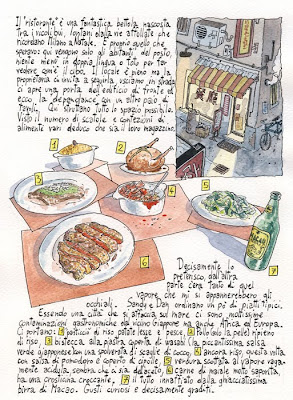 Il "ristorante" è una fantastica bettola nascosta
tra i vicoli bui, lontani dalle vie affollate che
ricordano Milano a Natale. È proprio quello che
speravo: qui vengono solo gli abitanti del posto,
niente menù in doppia lingua o foto per far
vedere com'è il cibo. Il locale è pieno ma la
proprietaria ci invita a seguirla, usciamo in strada
ci apre una porta nell'edificio di fronte ed
ecco la dependance con un altro paio di
tavoli, che sfruttano tutto lo spazio possibile.
Visto il numero di scatole e confezioni di
alimenti vari deduco che sia il loro magazzino.
1
2
3
4
5
6
7
Decisamente lo
preferisco, dall'altra
parte c'era tanto di quel
vapore che mi si appannerebbero gli
occhiali. Sandy e Dan ordinano un po' di piatti tipici.
Essendo una città che si affaccia sul mare ci sono moltissime
contaminazioni gastronomiche dal vicino Giappone ma anche Africa ed Europa.
Ci portano: 1 pasticcio di riso patate pesce e pesce, 2 pollo (con la pelle) ripieno
di riso, 3 bistecca alla piastra coperta di wasabi (la piccantissima salsa
verde giapponese) con una spolverata di scaglie di cocco, 4 ancora riso, questa volta
con salsa di pomodoro e coperto di cipolle, 5 verdura scottata al vapore vaga-
mente acidula, sembra che ci sia dell'aceto, 6 carne di maiale molto saporita,
ha una crosticina croccante, 7 il tutto innaffiato dalla ghiacciatissima
birra di Macao. Gusti curiosi e decisamente graditi.